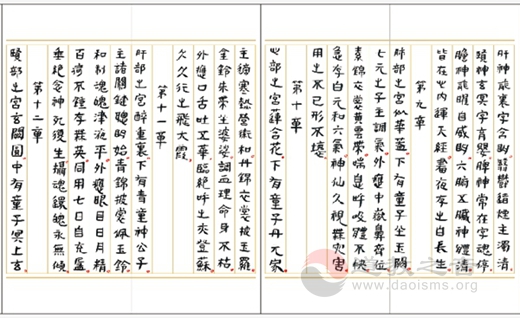 肝神龍裏字含明翳鬱錯煙主濁清
腎神玄冥字育嬰脾神常在字魂停
膽神龍曜自威明六腑五臟神體精
皆在心內運天經晝夜存之自長生
第九章
肺部之宮似華蓋下有童子坐玉闕
七元之子主調氣外應中嶽鼻齊位
素錦衣裳黃雲帶喘息呼吸體不快
急存白元和六氣神仙久視無災害
用之不已形不滯
第十章
心部之宮蓮含花下有童子丹元家
主適寒熱榮衛和丹錦衣裳披玉羅
金鈴朱帶坐婆娑調血理命身不枯
外應口舌吐五華臨絕呼之亦登蘇
久久行之飛太霞
第十一章
肝部之宮翠重裏下有青童神公子
主諸關鍵聰明始青錦披裳佩玉鈴
和制魂魄津液平外應眼目日月精
百痾所鍾存無英同用七日自充盈
垂絕念神死復生攝魂還魄永無傾
第十二章
腎部之宮玄闕圓中有童子冥上玄
道教之音
www.daoisms.org